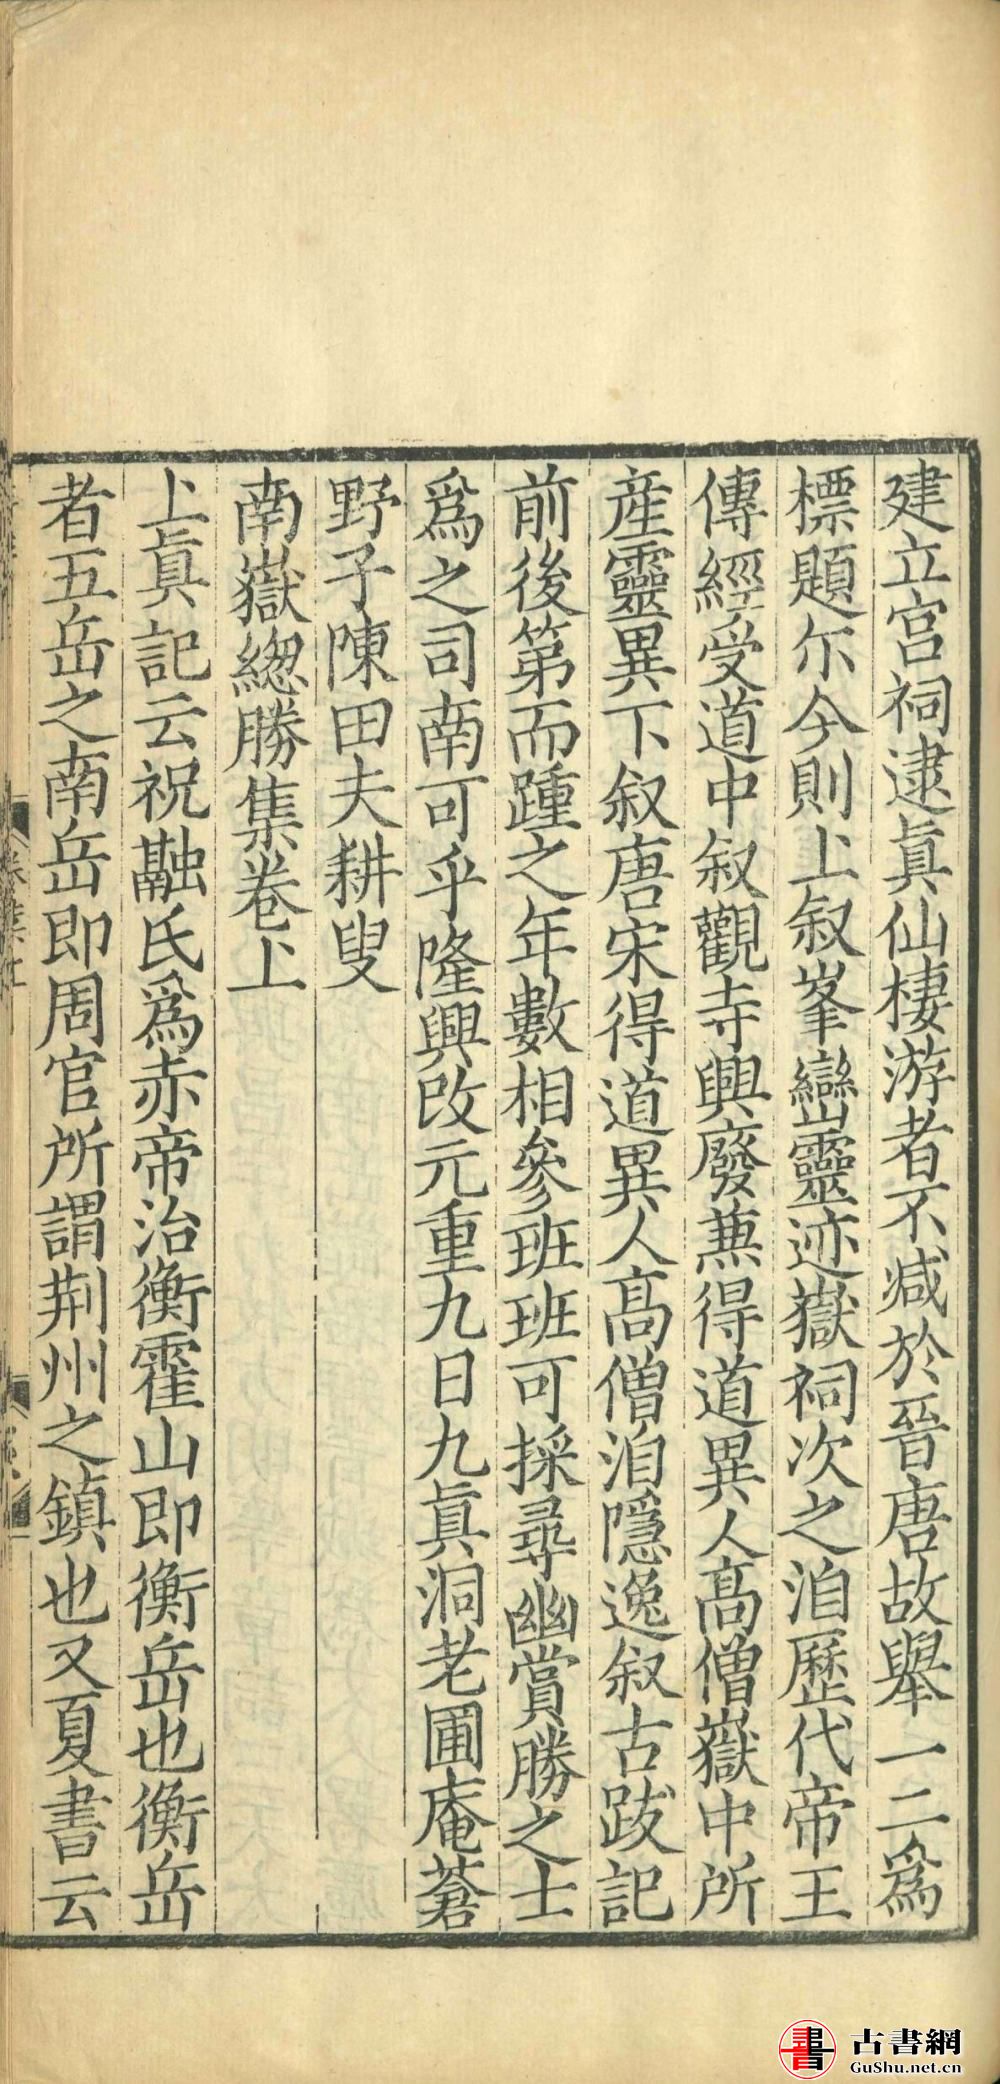 建立宫祠逮真仙棲游者不减於晉唐故舉一二爲
標題尒今則上叙峯巒靈迹嶽祠次之洎歷代帝王
傳經受道中叙觀寺興廢兼得道異人髙僧嶽中所
産靈異下叙唐宋得道異人髙僧洎隱逸叙古跋記
前後第而踵之年數相參班班可採尋幽賞勝之士
爲之司南可乎隆興改元重九日九真洞老圃庵蒼
野子陳田夫耕叟
南嶽緫勝集卷上
上真記云祝融氏爲赤帝治衡霍山即衡岳也衡岳
者五岳之南岳即周官所謂荆州之鎮也又夏書云
古書網
GuShu.net.cn